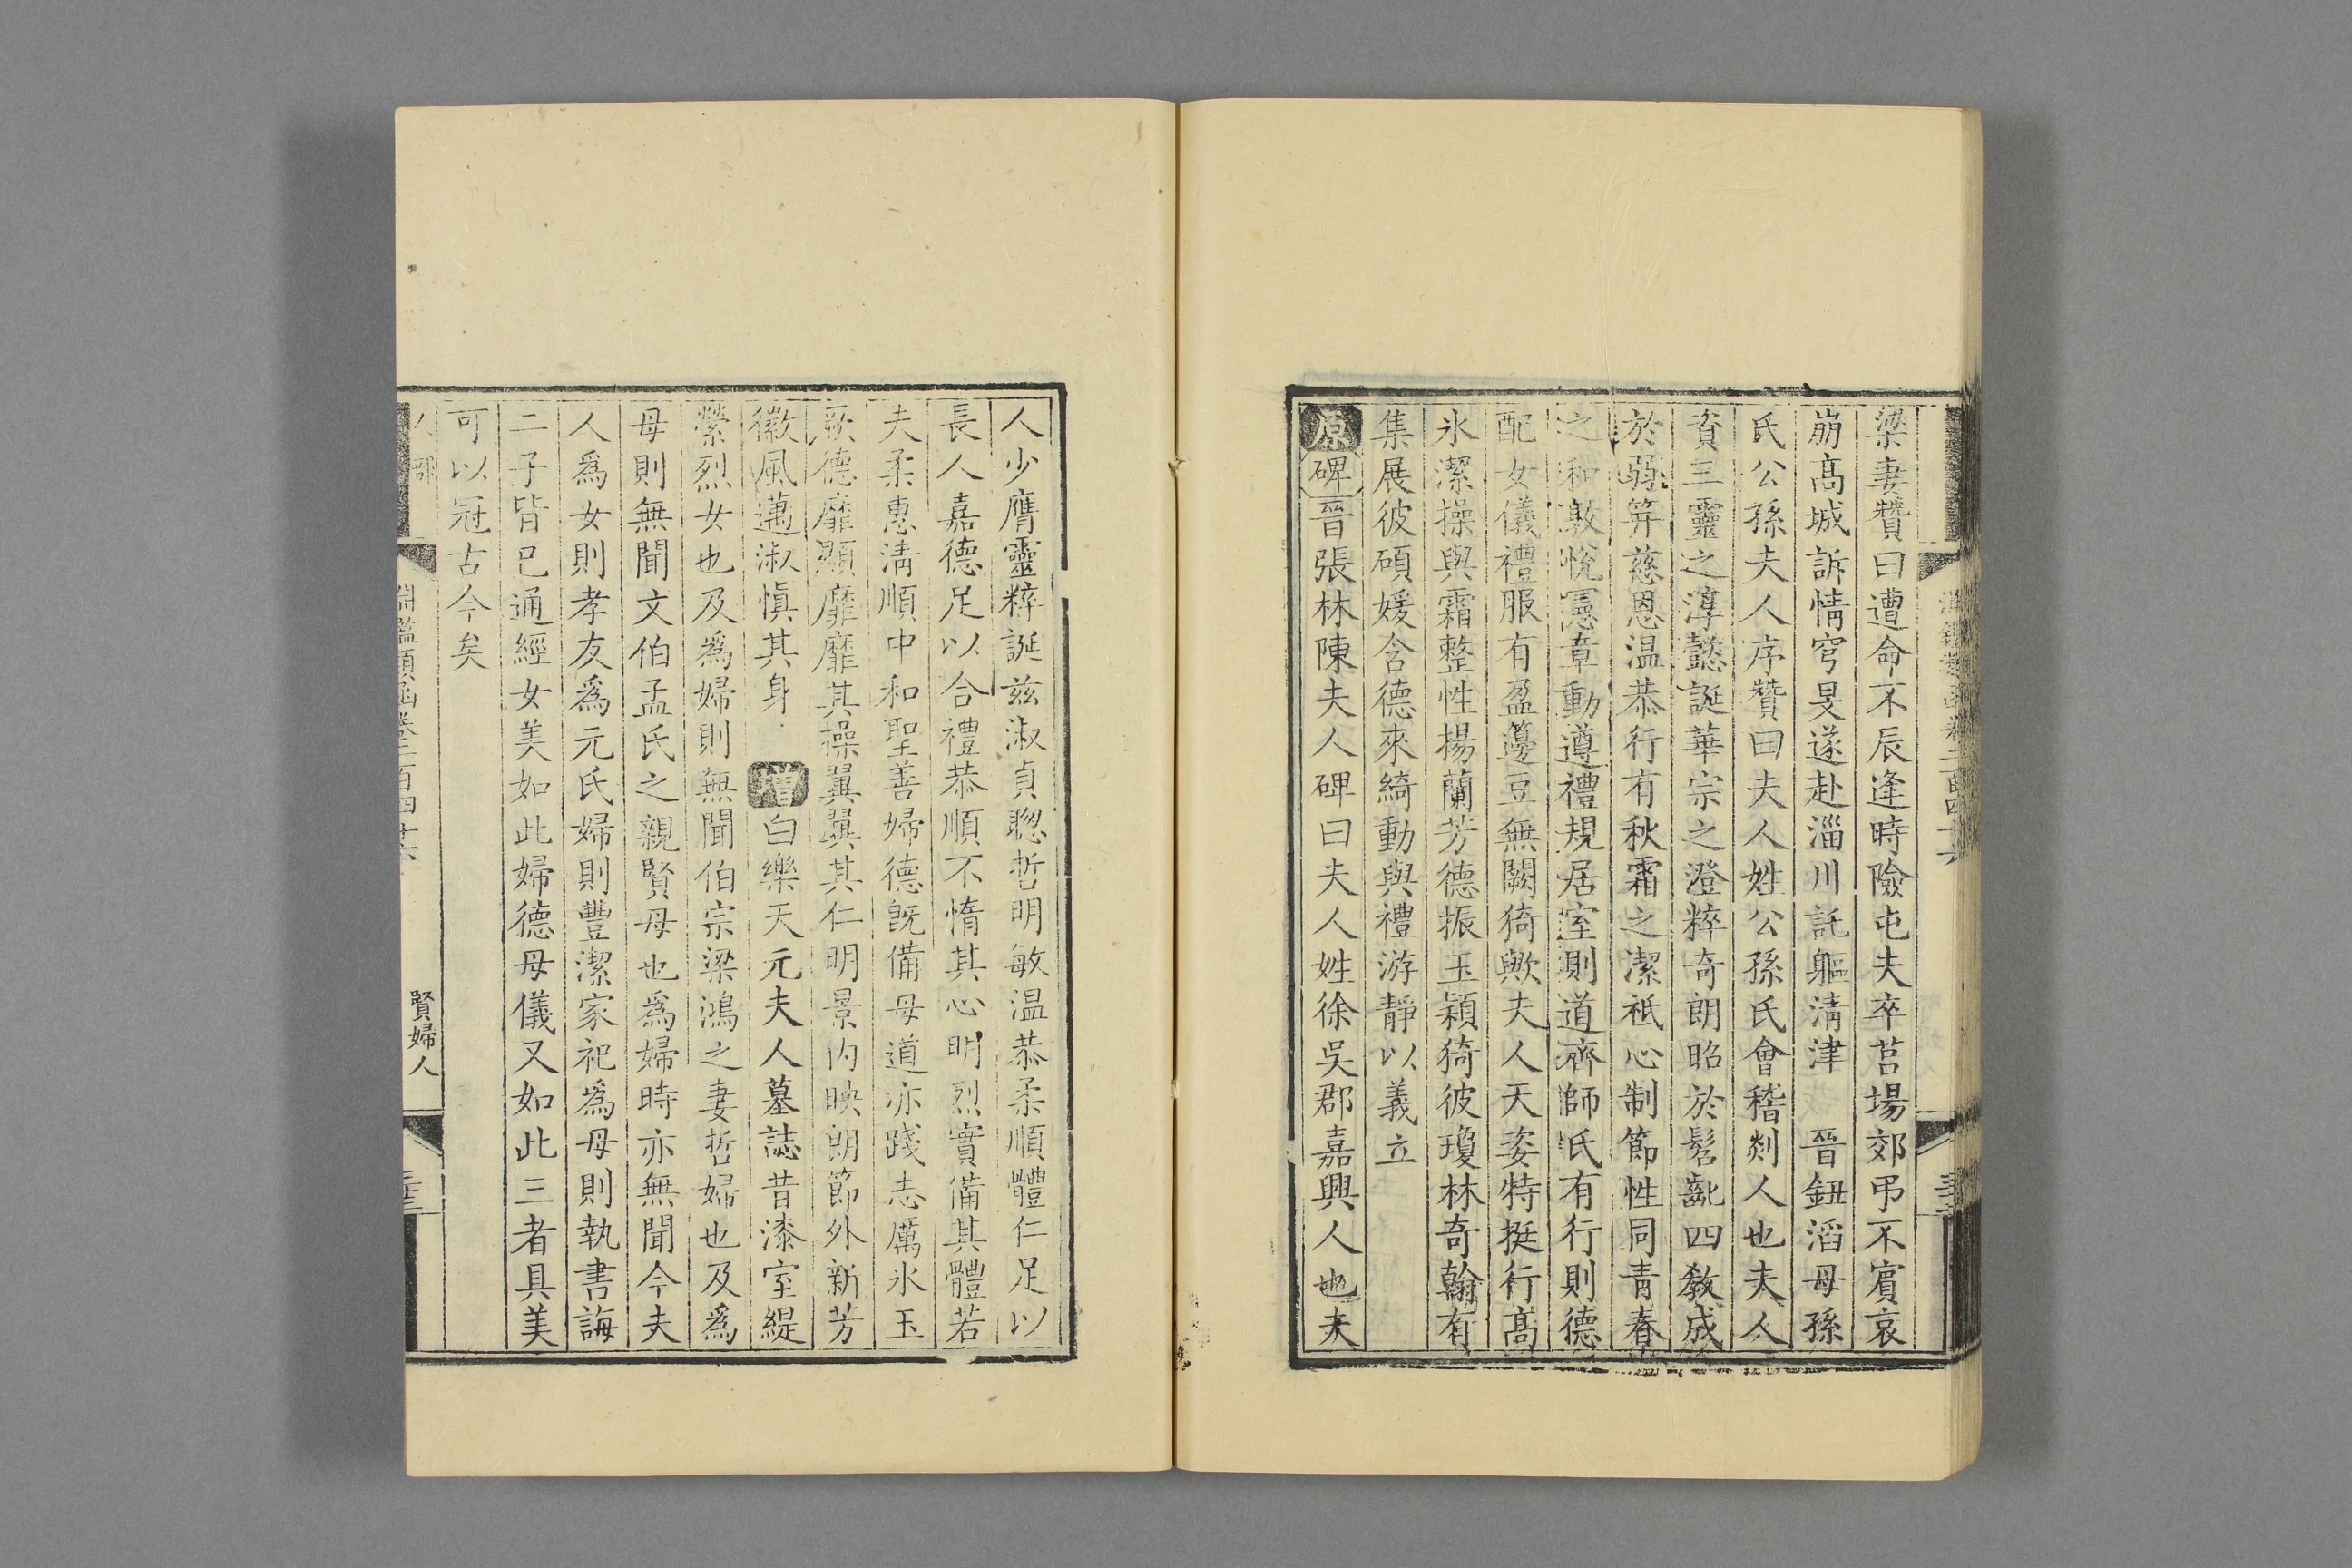 梁妻贊曰遭命不辰逢時險屯夫卒莒場郊弔不賓哀
崩高城訴情穹旻遂赴淄川託軀淸津　晉鈕滔母孫
氏公孫夫人序贊曰夫人姓公孫氏會稽剡人也夫人
資三靈之淳懿誕華宗之澄粹奇朗昭於髫齔四敎成
於弱笄慈恩温恭行有秋霜之潔祗心制節性同青春
之和敦悅憲章動遵禮規居室則道齊師氏有行則德
配女儀禮服有盈籩豆無闕猗歟夫人天姿特挺行高
氷潔操與霜整性揚蘭芳德振玉穎猗彼瓊林奇翰有
集展彼碩媛含德來綺動與禮游靜以義立
原碑晉張林陳夫人碑曰夫人姓徐吳郡嘉興人也夫
人少膺靈粹誕兹淑貞聰哲明敏温恭柔順體仁足以
長人嘉德足以合禮恭順不惰其心明烈實備其體若
夫柔惠淸順中和聖善婦德旣備母道亦踐志厲氷玉
厥德靡顯靡靡其操翼翼其仁明景内映朗節外新芳
徽風邁淑愼其身　增白樂天元夫人墓誌昔漆室緹
縈烈女也及爲婦則無聞伯宗梁鴻之妻哲婦也及爲
母則無聞文伯孟氏之親賢母也爲婦時亦無聞今夫
人爲女則孝友爲元氏婦則豐潔家祀爲母則執書誨
二子皆已通經女美如此婦德母儀又如此三者具美
可以冠古今矣
人部
淵鑑類函卷二百四十六
賢婦人